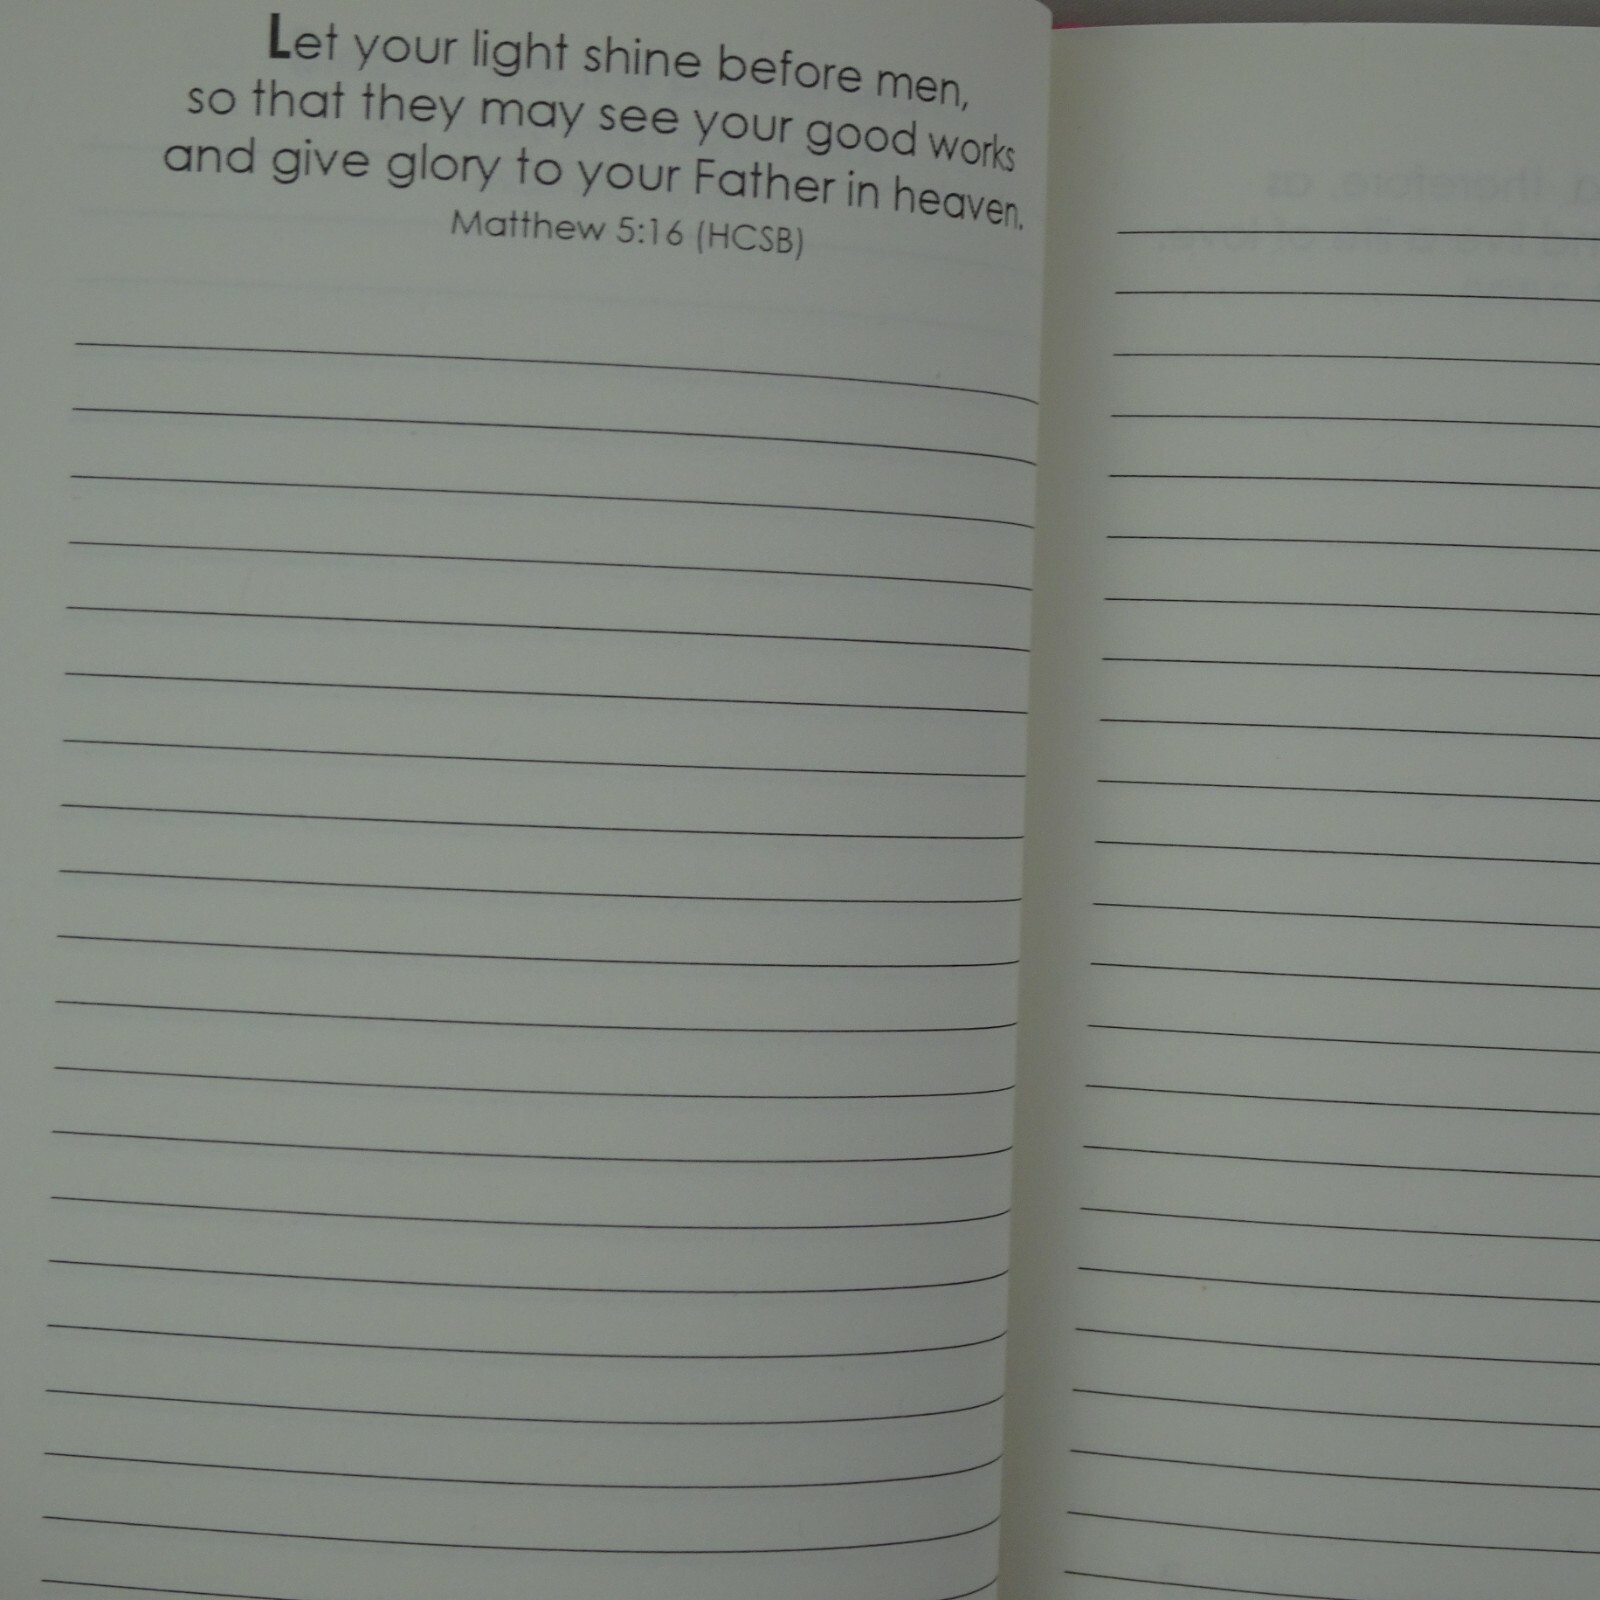 Let your light shine before men,
so that they may see your good works
and give glory to your Father in heaven.
Matthew 5:16 (HCSB)
therefore as
live a life of love,